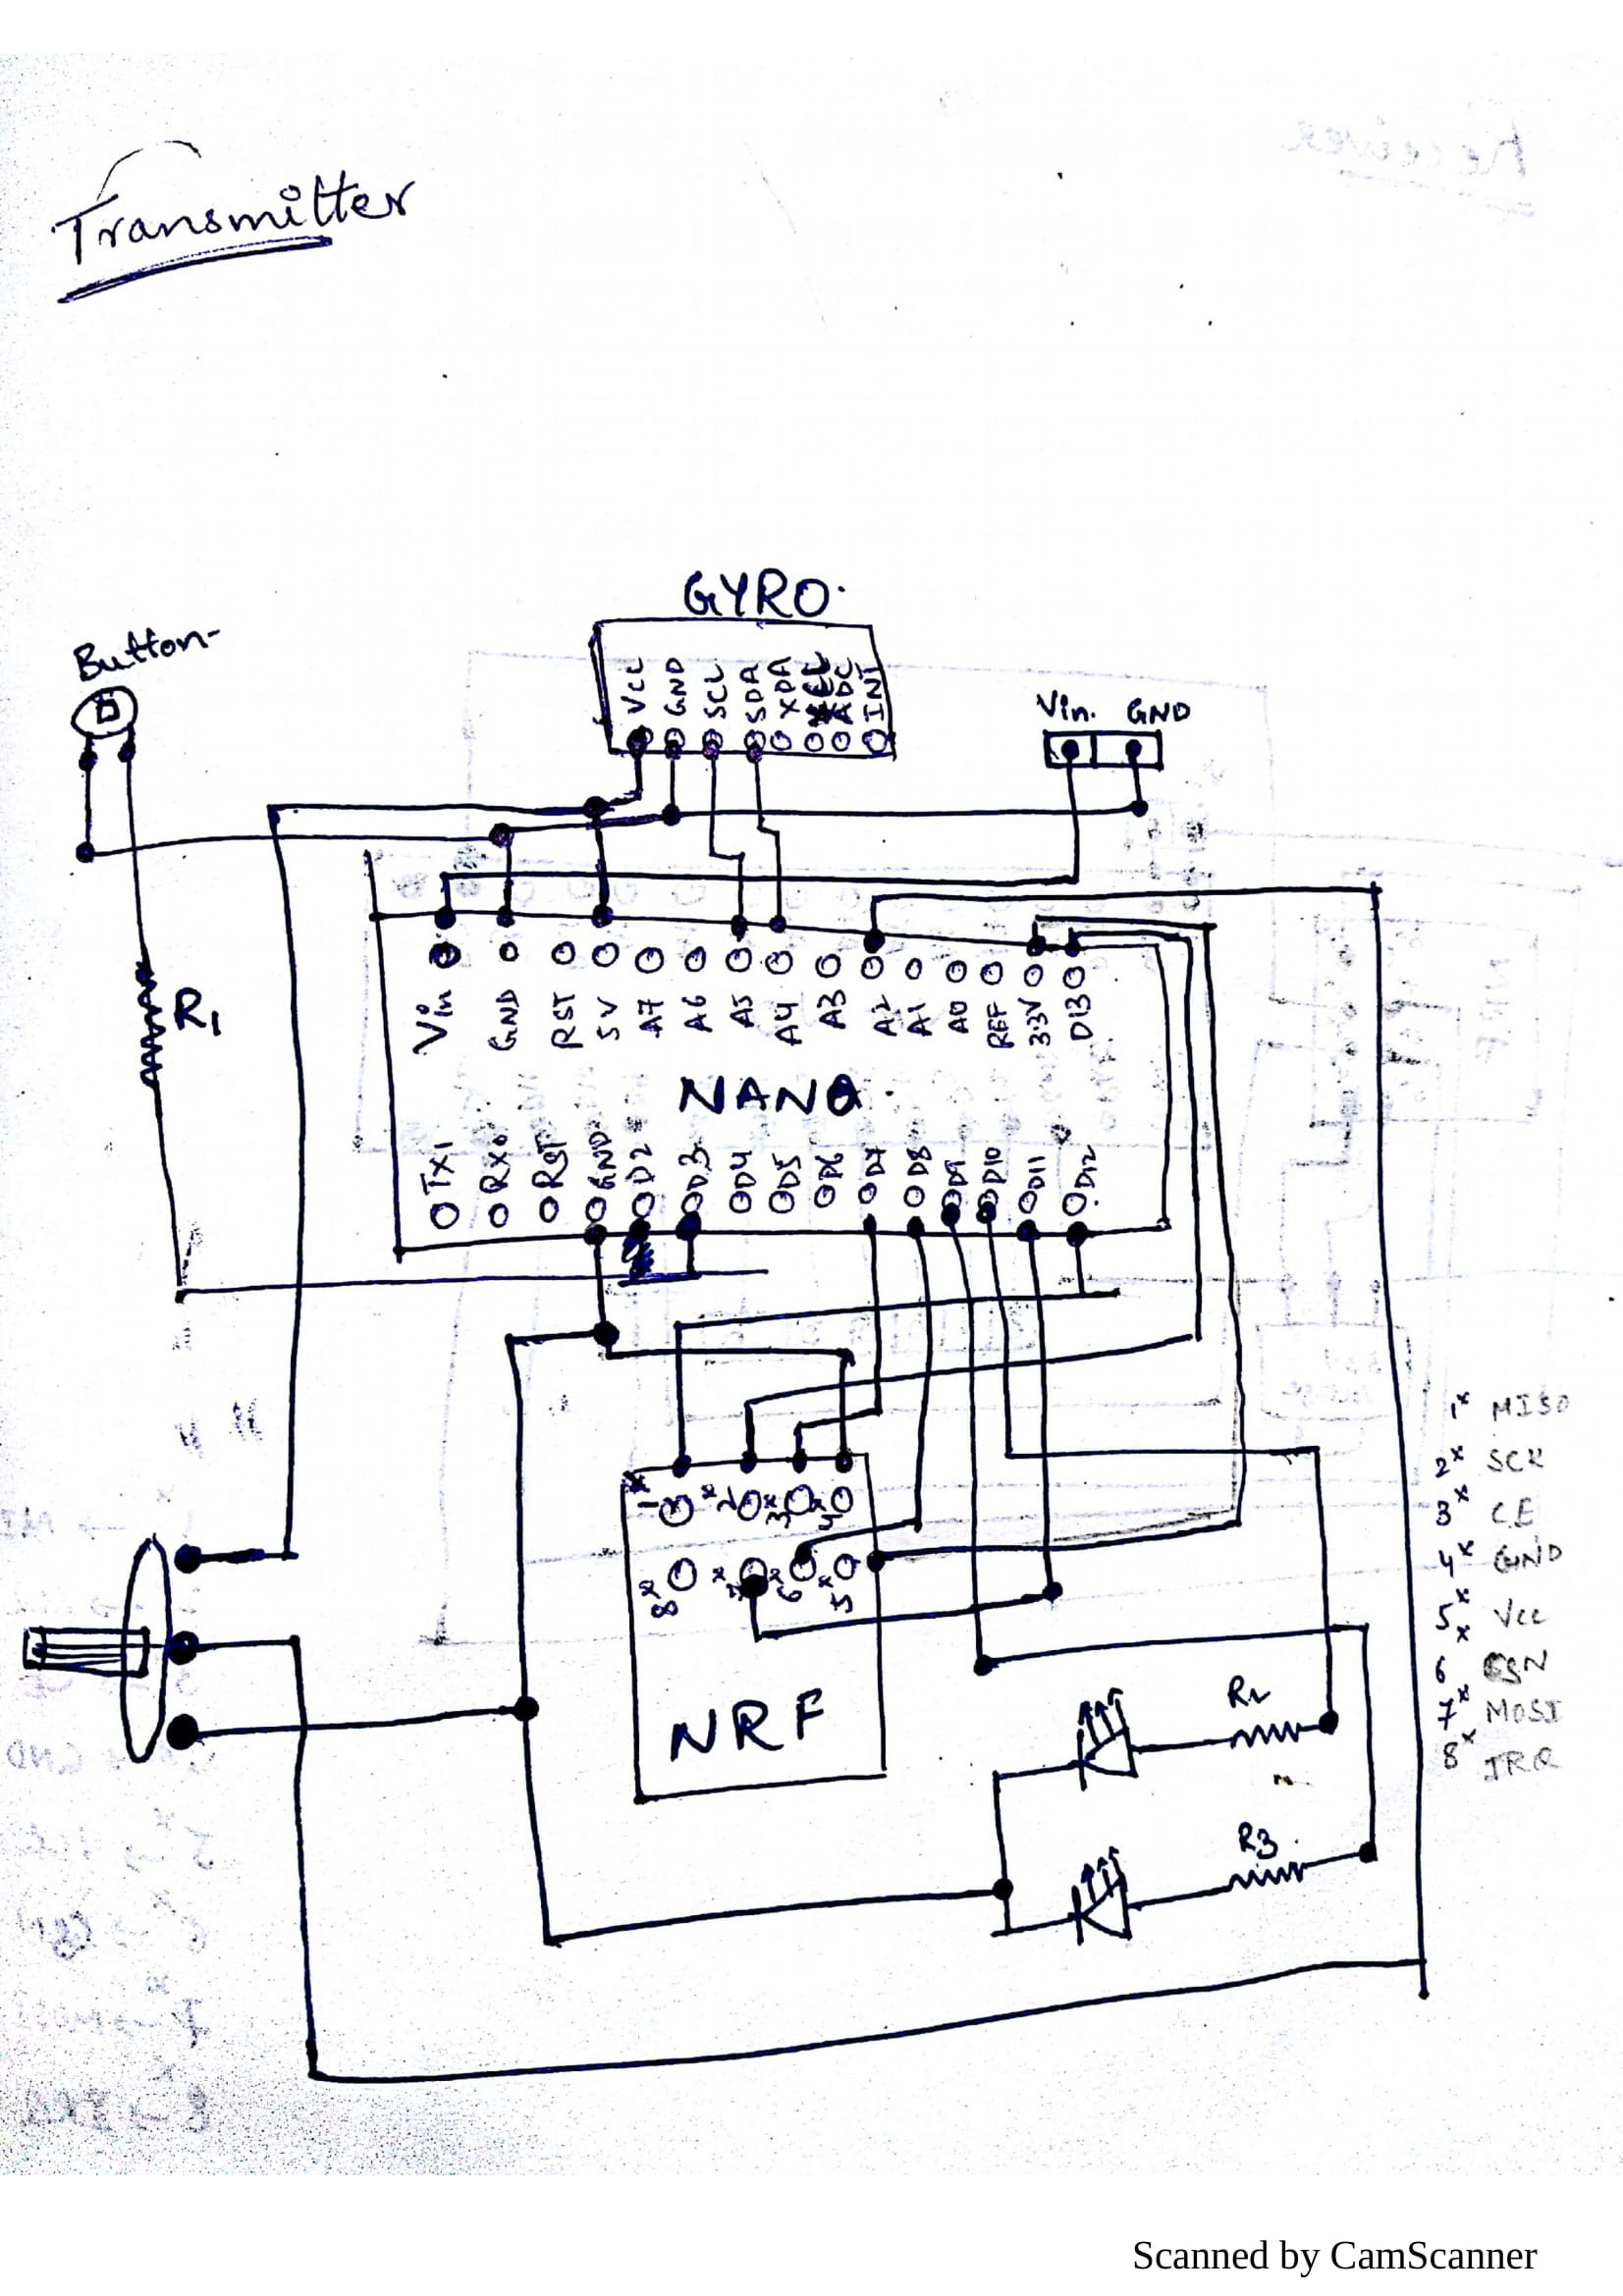 Transmitter
GYRO.
Button-
VCC GND SCL SDA XDA ADC INT
Vin. GND
R1
Vin GND RST 5V A7 A6 A5 A4 A3 A2 A1 A0 REF 3.3V D13
NANO.
TX1 RX0 RST GND D2 D3 D4 D5 D6 D7 D8 D9 D10 D11 D12
1* MISO
2* SCK
3* CE
4* GND
5* Vcc
6* CSN
7* MOSI
8* IRQ
*1 *2 *3 *4
*8 *7 *6 *5
NRF
R2
R3.
Scanned by CamScanner